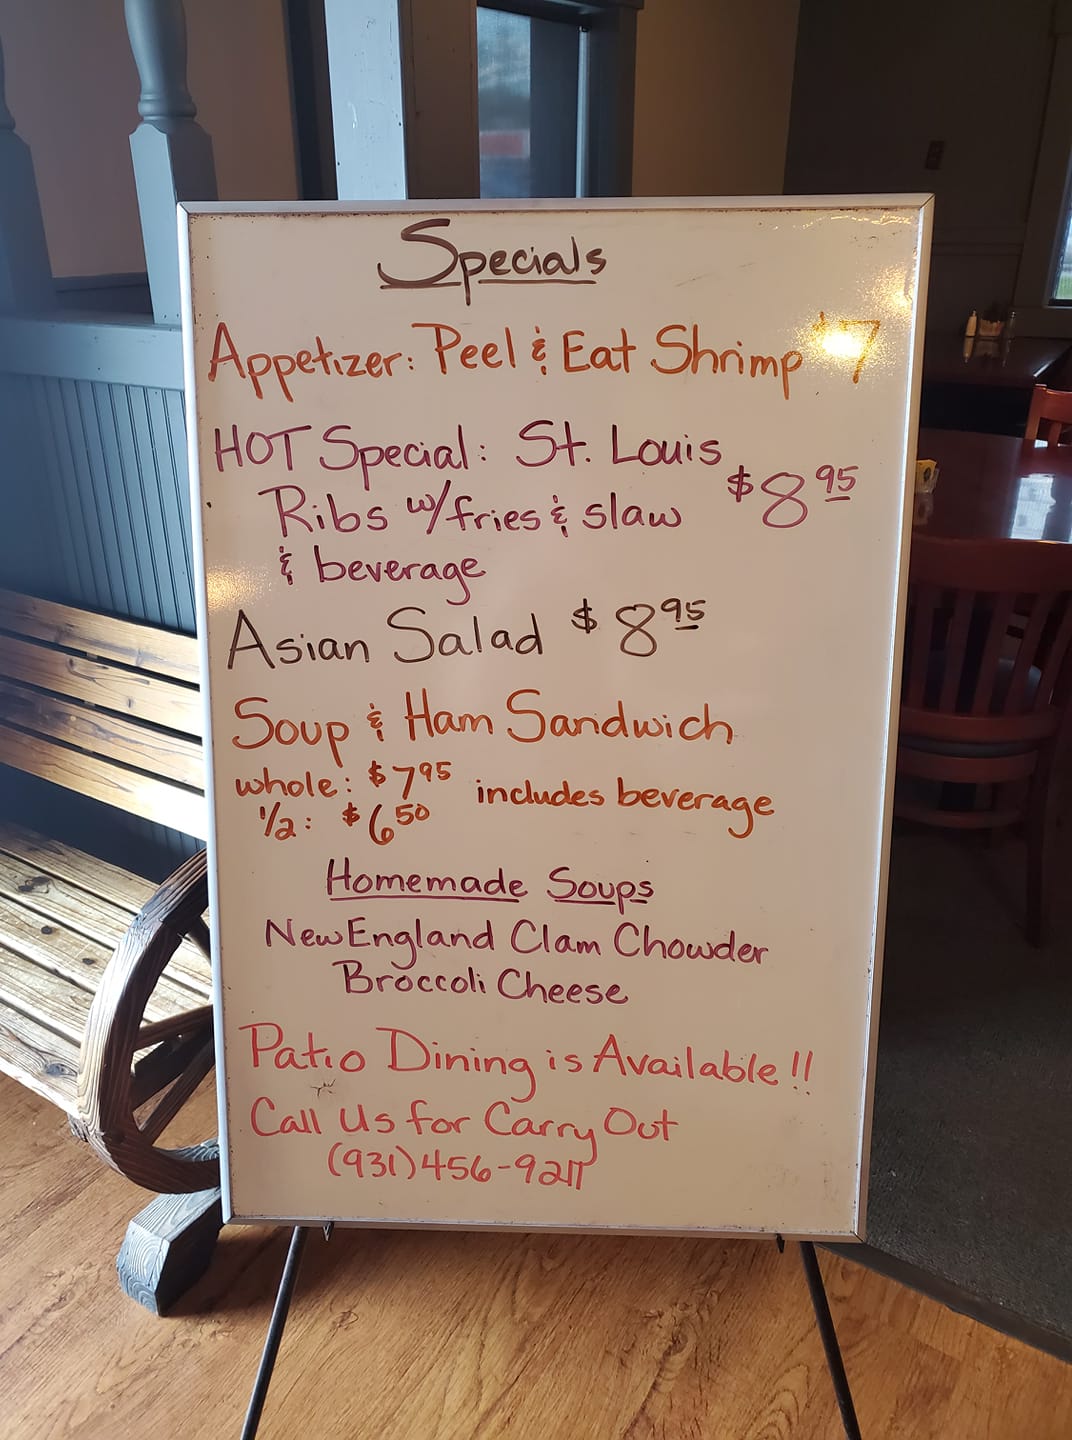 Specials
Appetizer: Peel & Eat Shrimp $7
HOT Special: St. Louis
Ribs w/fries & slaw $8.95
& beverage
Asian Salad $8.95
Soup & Ham Sandwich
whole: $7.95 includes beverage
1/2: $6.50
Homemade Soups
New England Clam Chowder
Broccoli Cheese
Patio Dining is Available!!
Call Us for Carry Out
(931)456-9211